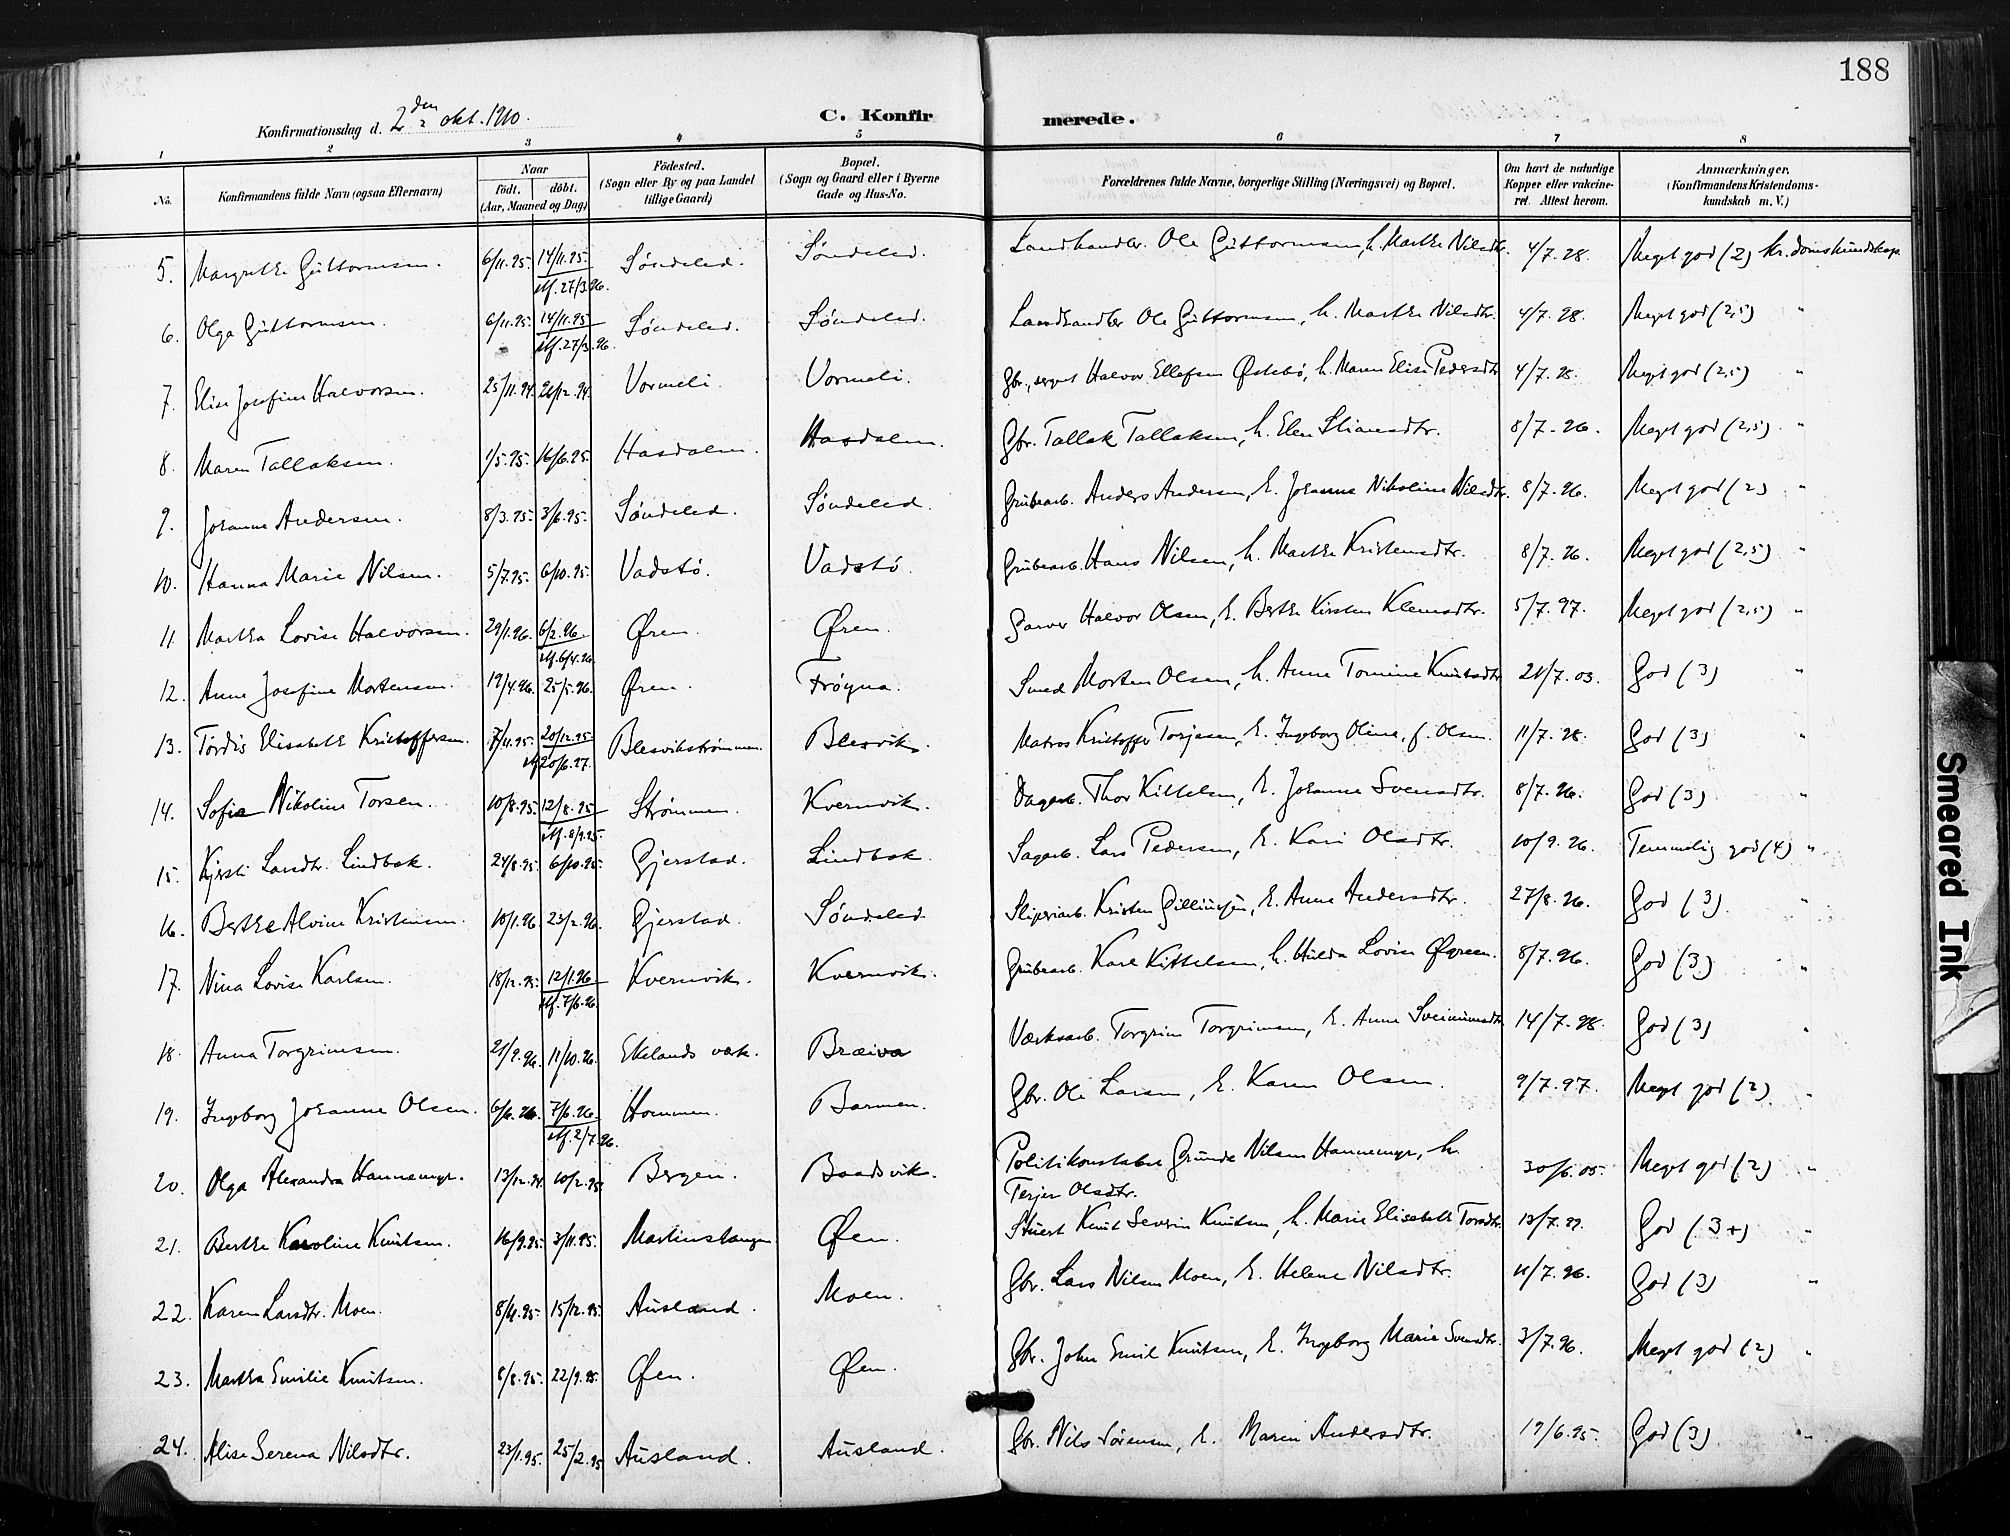 188
Konfirmationsdag d. 2den okt. 1910.
C. Konfirmerede.
1 2 3 4 5 6 7 8
No.
Konfirmandens fulde Navn (ogsaa Efternavn)
Naar
født. døbt.
(Aar, Maaned og Dag)
Födested.
(Sogn eller By og paa Landet
tillige Gaard)
Bopæl.
(Sogn og Gaard eller i Byerne
Gade og Hus-No.
Forældrenes fulde Navne, borgerlige Stilling (Næringsvei) og Bopæl.
Om havt de naturlige
Kopper eller vakcine-
ret. Attest herom.
Anmærkninger.
(Konfirmandens Kristendoms-
kundskab m. V.)
5. Margrethe Guttormsen. 6/11.95. 14/11.95. stf. 27/3.96. Søndeled. Søndeled. Landhandler Ole Guttormsen, h. Marthe Nilsdtr. 4/7.98. Meget god (2) kr.domskundskap.
6. Olga Guttormsen. 6/11.95. 14/11.95 stf. 27/3.96. Søndeled. Søndeled. Landhandler Ole Guttormsen, h. Marthe Nilsdtr. 4/7.98. Meget god (2,5) "
7. Elise Josefine Halvorsen. 25/11.94. 26/12.94. Vormeli. Vormeli. Gbr., Halvor Ellefsen Østebø, h. Maren Elise Pedersdtr. 4/7.98. Meget god (2,5) "
8. Maren Tallaksen. 1/5.95. 16/6.95. Hasdalen. Hasdalen. Gbr. Tallak Tallaksen, h. Elen Stiansdtr. 8/7.96. Meget god (2,5) "
9. Johanne Andersen. 8/3.95. 3/6.95. Søndeled. Søndeled. Grubearb. Anders Andersen, h. Johanne Nikoline Nilsdtr. 8/7.96. Meget god (2) "
10. Hanna Marie Nilsen. 5/7.95. 6/10.95. Vadstø. Vadstø. Grubearb. Hans Nilsen, h. Marthe Kristensdtr. 8/7.96. Meget god (2,5) "
11 Martha Lovise Halvorsen. 29/1.96. 6/2.96. stf. 6/4.96. Øren. Øren. Garver Halvor Olsen, h. Berthe Kirstine Klemsdtr. 5/7.97. Meget god (2,5) "
12. Anne Josefine Mortensen. 19/4.96. 25/5.96. Øren. Frøyna. Smed Morten Olsen, h. Anne Tomine Knutsdtr. 21/7.03. God (3) "
13. Tordis Elisabeth Kristoffersen. 7/11.95. 20/12.95 stf. 20/6.97. Blesvikstrømmen. Blesvik. Matros Kristoffer Torjesen, h. Ingeborg Oline, f. Olsen. 11/7.98. God (3) "
14. Sofie Nikoline Torsen. 10/8.95. 12/8.95 stf. 8/9.95. Strømmen. Kvernvik. Dagarb. Thor Kittelsen, h. Johanne Svensdtr. 8/7.96. God (3) "
15. Kjersti Larsdtr. Lindbak. 24/8.95. 6/10.95. Gjerstad. Lindbak. Sagarb. Lars Pedersen, h. Kari Olsdtr. 10/9.96. Temmelig god (4) "
16. Berthe Alvine Kristensen. 10/1.96. 23/2.96. Gjerstad. Søndeled. Sliperiarb. Kristen h. Anne Andersdtr. 27/8.96. God (3). "
17. Nina Lovise Karlsen. 18/12.95. 12/1.96 stf. 7/6.96. Kvernvik. Kvernvik. Grubearb. Karl Kittelsen, h. Hulda Lovise Øgreen. 8/7.96. God (3) "
18. Anna Torgrimsen. 21/9.96. 11/10.96. Ekelands værk. Bræiva Værksarb. Torgrim Torgrimsen, h. Anne Sveinumsdtr. 14/7.98. God (3) "
19. Ingeborg Johanne Olsen. 6/6.96. 7/6.96. stf. 2/7.96. Hommen. Barmen. Gbr. Ole Larsen, h. Karen Olsen. 9/7.97. Meget god (2) "
20. Olga Alexandra Hannemyr. 13/12.94. 10/2.95. Bergen. Baadsvik. Politikonstabel Grunde Nilsen Hannemyr, h. Terjer Olsdtr. 30/6.05. Meget god (2) "
21. Berthe Karoline Knutsen. 16/9.95. 3/11.95. Martinstangen Øen. Stuert Knut Severin Knutsen, h. Marie Elisabeth Torsdtr. 13/7.99. God (3+) "
22. Karen Larsdtr. Moen. 8/11.95. 15/12.95. Ausland. Moen. Gbr. Lars Nilsen Moen, h. Helene Nilsdtr. 11/7.96. God (3) "
23. Martha Emilie Knutsen. 8/8.95. 22/9.95. Øen. Øen. Gbr. John Emil Knutsen, h. Ingeborg Marie Svensdtr. 3/7.96. Meget god (2) "
24. Alise Serena Nilsdtr. 23/1.95. 25/2.95 Ausland. Ausland. Gbr. Nils Sørensen, h. Maren Andersdtr. 19/6.95. God (3) "
Smeared Ink